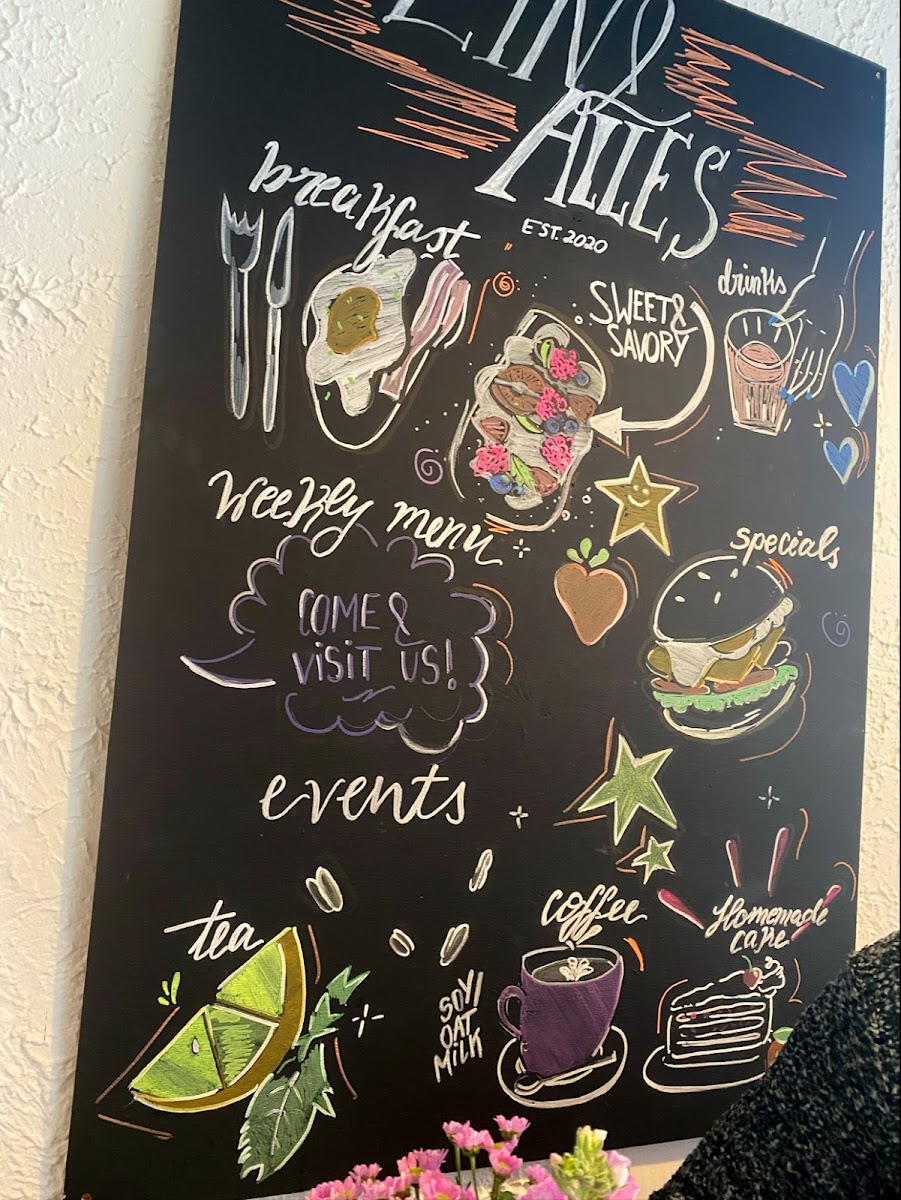 EIN &
ALLES
EST. 2020
breakfast
SWEET &
SAVORY
drinks
weekly menu
specials
COME &
ViSiT US!
events
tea
coffee
Homemade
cake
SOY/
OAT
MiLK